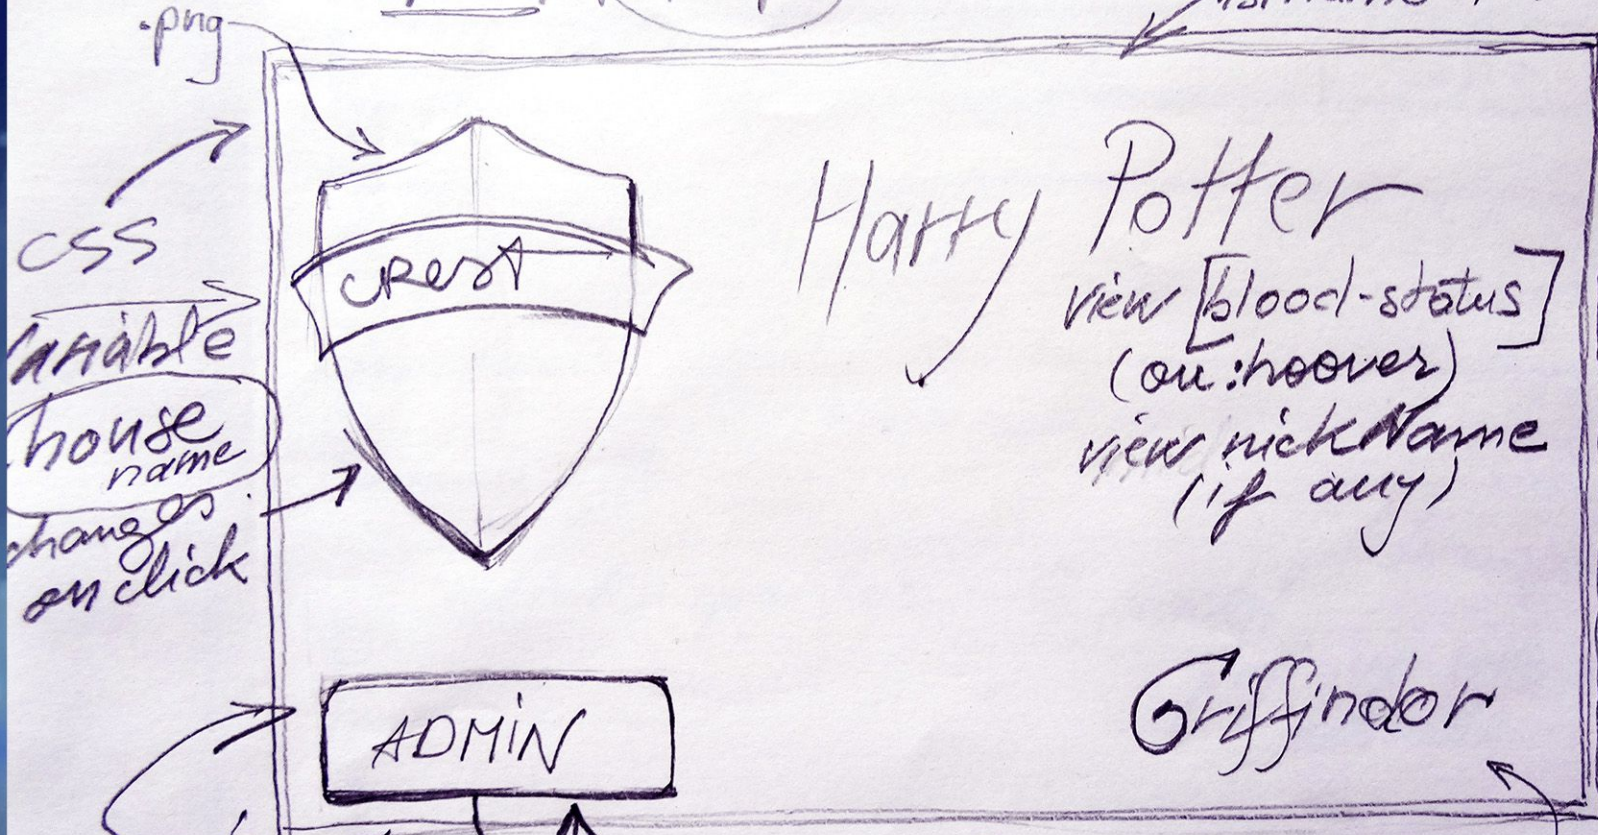 .png
css
variable
house
name
changes
on click
crest
Harry Potter
view [blood-status]
(on :hoover)
view nickName
(if any)
ADMiN
Griffindor